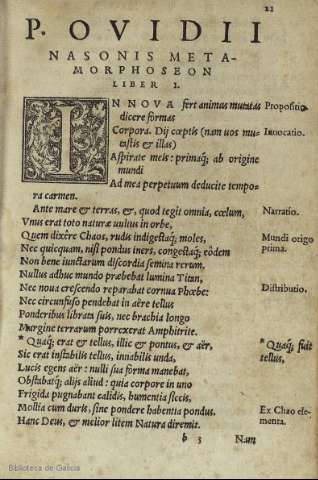 21
P. OVIDII
NASONIS META-
MORPHOSEON
LIBER I.
IN NOVA fert animus mutatas Propositio
dicere formas
Corpora. Dij cœptis (nam uos mu- Inuocatio.
tastis & illas)
Aspirate meis: primaq; ab origine
mundi
Ad mea perpetuum deducite tempo-
ra carmen.
Ante mare & terras, &, quod tegit omnia, cœlum, Narratio.
Vnus erat toto naturæ uultus in orbe,
Quem dixêre Chaos, rudis indigestaq; moles, Mundi origo
Nec quicquam, nisi pondus iners, congestaq; eòdem prima.
Non bene iunctarum discordia semina rerum,
Nullus adhuc mundo præbebat lumina Titan,
Nec noua crescendo reparabat cornua Phœbe: Distributio.
Nec circunfuso pendebat in aëre tellus
Ponderibus librata suis, nec brachia longo
Margine terrarum porrexerat Amphitrite.
* Quaq; erat & tellus, illic & pontus, & aër, * Quaq; fuit
Sic erat instabilis tellus, innabilis unda, tellus,
Lucis egens aër: nulli sua forma manebat,
Obstabatq; alijs aliud: quia corpore in uno
Frigida pugnabant calidis, humentia siccis,
Mollia cum duris, sine pondere habentia pondus. Ex Chao ele-
Hanc Deus, & melior litem Natura diremit. menta.
b 3 Nam
Biblioteca de Galicia